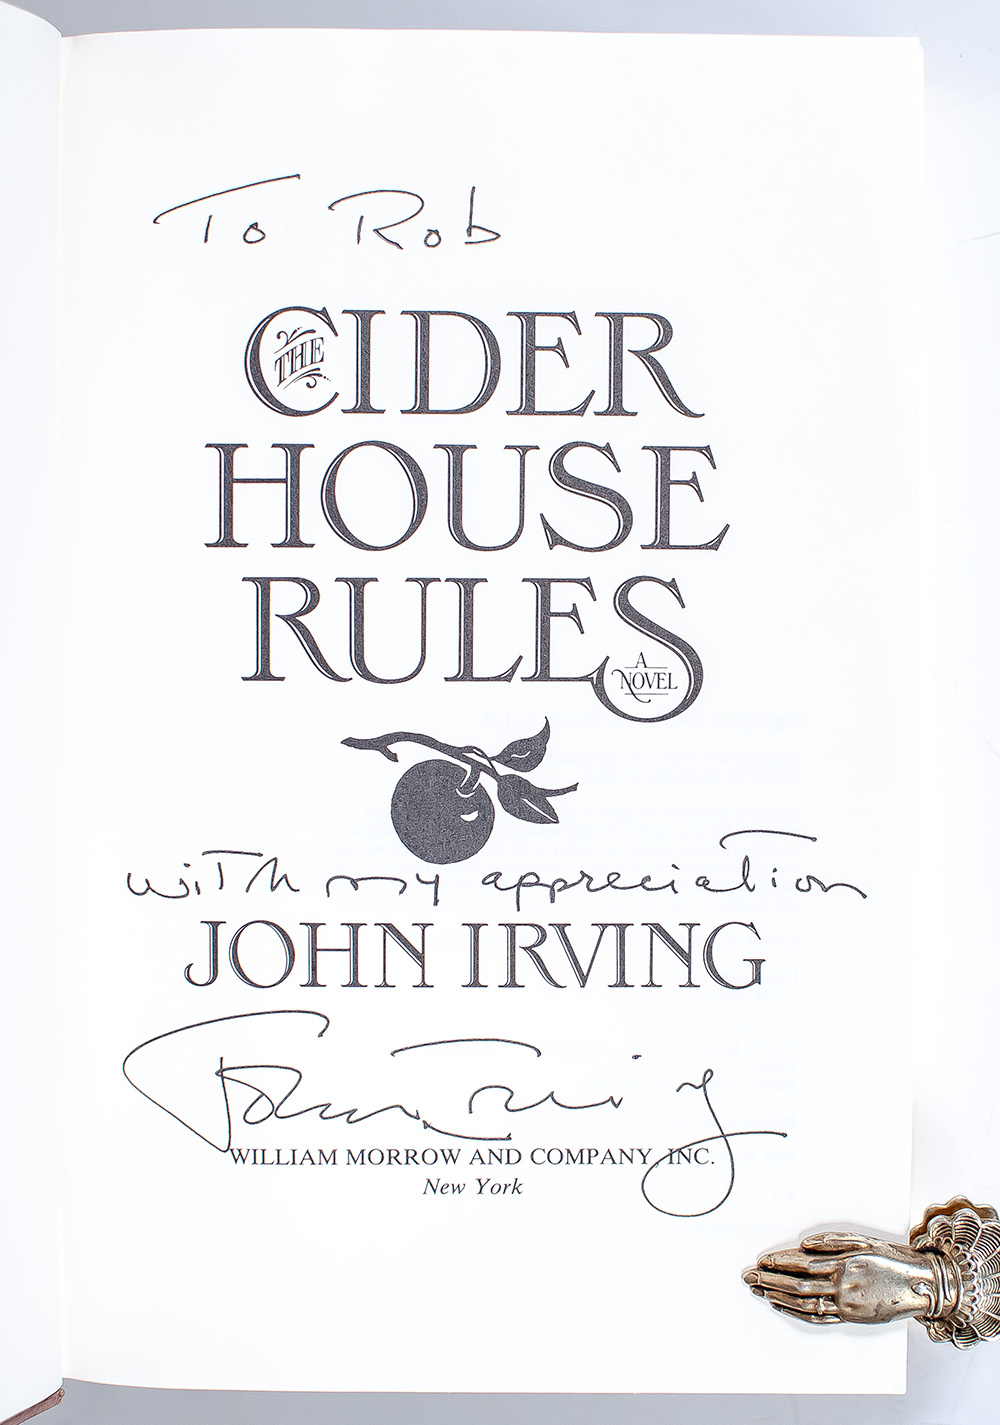 To Rob
THE CIDER
HOUSE
RULES
A
NOVEL
with my appreciation
JOHN IRVING
John Irving
WILLIAM MORROW AND COMPANY, INC.
New York